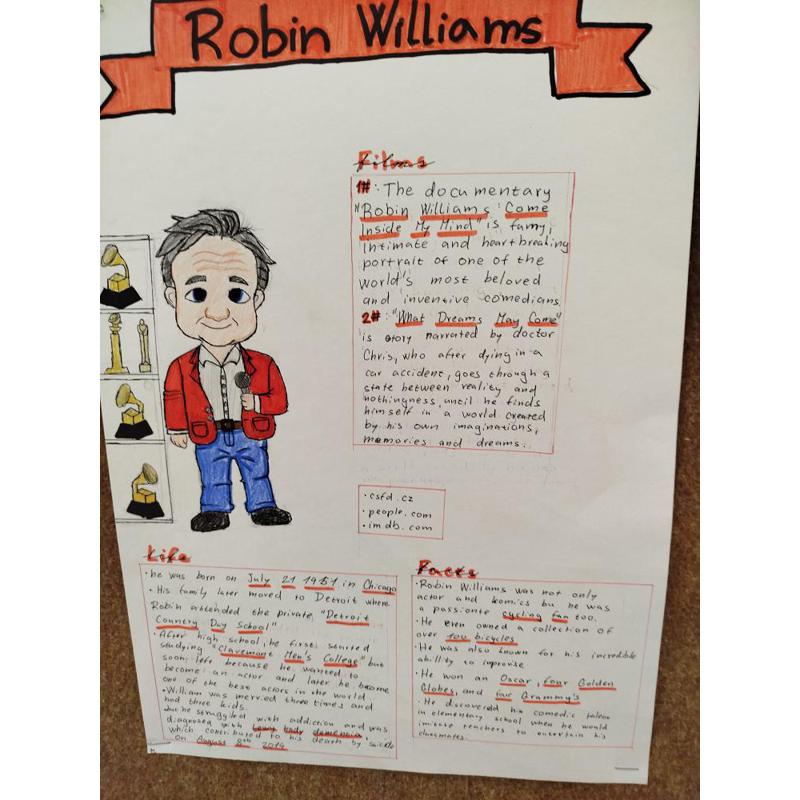 Robin Williams
Films
1#: The documentary
"Robin Williams: Come
Inside My Mind" is funny,
intimate and heartbreaking
portrait of one of the
world's most beloved
and inventive comedians.
2#: "What Dreams May Come"
is story narrated by doctor
Chris, who after dying in a
car accident, goes through a
state between reality and
nothingness, until he finds
himself in a world created
by his own imaginations,
memories and dreams.
• csfd.cz
• people.com
• imdb.com
Life
• he was born on July 21 1951 in Chicago
• His family later moved to Detroit where
Robin attended the private "Detroit
Country Day School"
• After high school, he first started
studying "Claremont Men's College" but
soon left because he wanted to
become an actor and later he become
one of the best actors in the world
• William was merried three times and
had three kids.
but he struggled with addiction and was
diagnosed with Lewy body dementia,
which contributed to his death by suicide
on August
Facts
• Robin Williams was not only
actor and komics but he was
a passionte cycling fan too.
• He even owned a collection of
over 100 bicycles
• He was also known for his incredible
ability to improvise
• He won an Oscar, four Golden
Globes, and four Grammy's
• He discovered his comedic talen
in elementary school when he would
imitate teachers to entertain his
classmates.